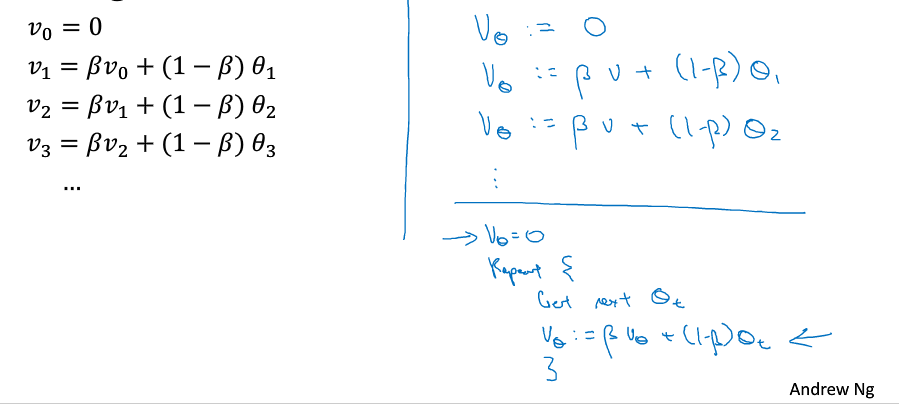 v₀ = 0
v₁ = βv₀ + (1 − β) θ₁
v₂ = βv₁ + (1 − β) θ₂
v₃ = βv₂ + (1 − β) θ₃
...
V_θ := 0
V_θ := β v + (1-β) θ₁
V_θ := β v + (1-β) θ₂
⋮
→ V_θ = 0
Repeat {
Get next θ_t
V_θ := β V_θ + (1-β) θ_t ←
}
Andrew Ng